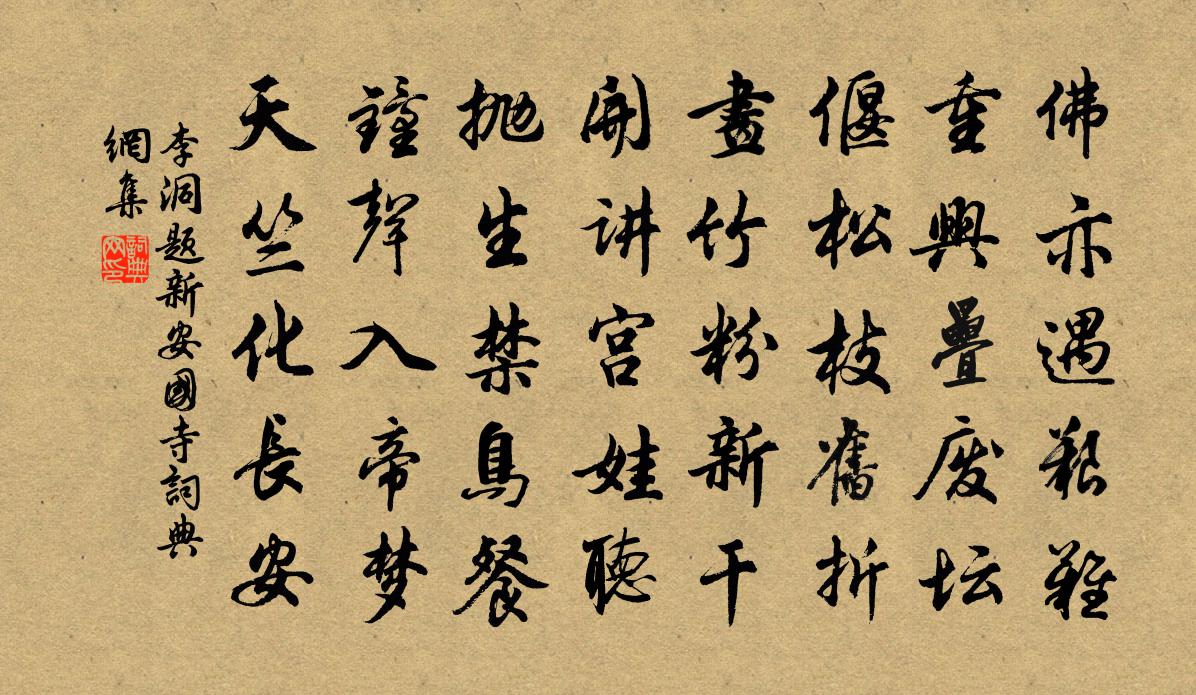 佛亦遇艱難
重興疊废坛
偃松枝舊折
畫竹粉新干
開讲宫娃聽
抛生禁鳥餐
鐘聲入帝梦
天竺化長安
李洞题新安國寺詞典
網集
詞典网印